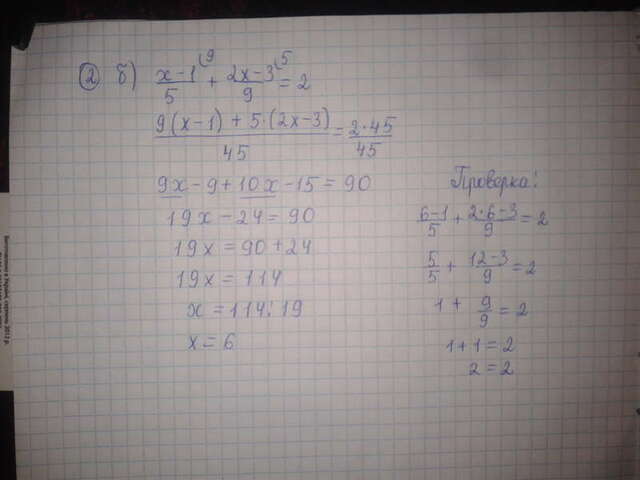 ② б) (x-1)/5 (9 + (2x-3)/9 (5 = 2
(9(x-1) + 5·(2x-3))/45 = (2·45)/45
9x - 9 + 10x - 15 = 90
19x - 24 = 90
19x = 90 + 24
19x = 114
x = 114:19
x = 6
Проверка:
(6-1)/5 + (2·6-3)/9 = 2
5/5 + (12-3)/9 = 2
1 + 9/9 = 2
1+1 = 2
2 = 2